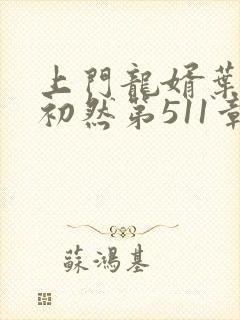 上門龍婿葉
初然第511章
蘇鴻基